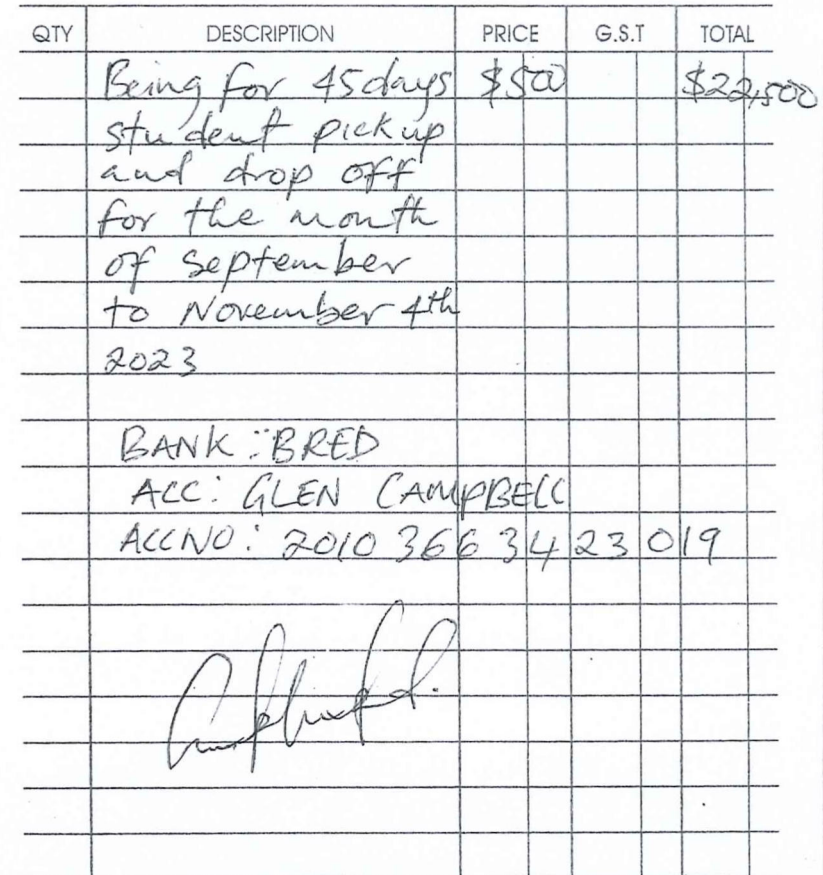 QTY DESCRIPTION PRICE G.S.T TOTAL
Being for 45days $500 $22,500
student pickup
and drop off
for the month
of september
to November 4th
2023
BANK: BRED
ACC: GLEN CAMPBELL
ACCNO: 2010 366 34 23 019